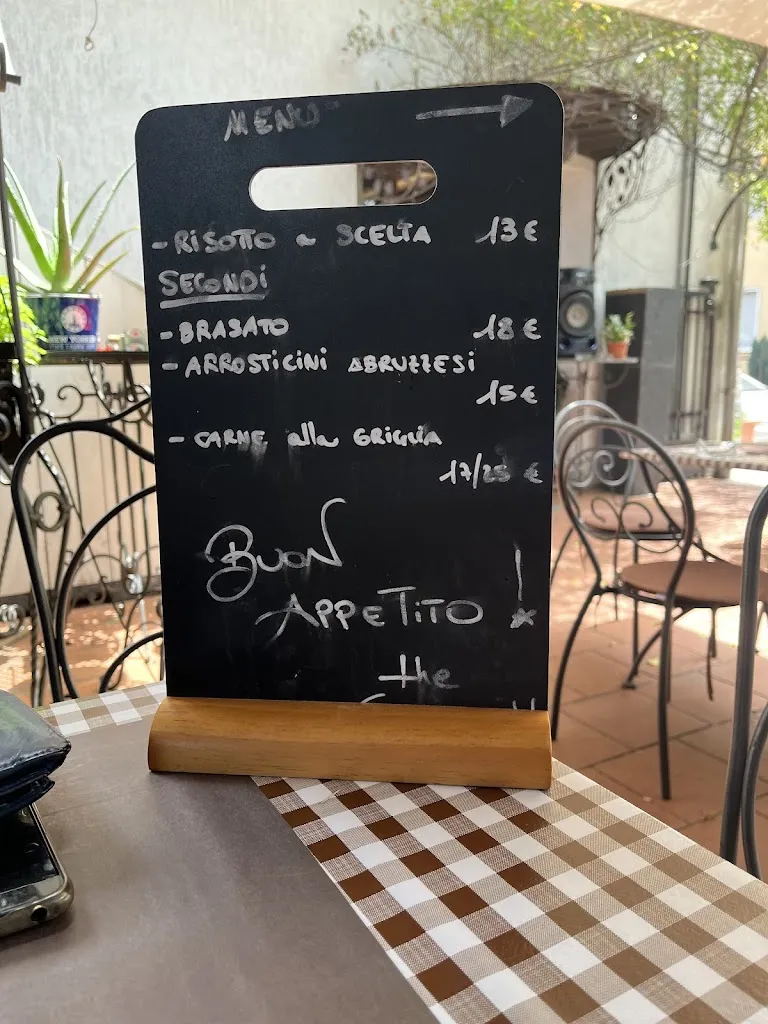 MENU
- RISOTTO a SCELTA 13 €
SECONDI
- BRASATO 18 €
- ARROSTICINI ABRUZZESI
15 €
- CARNE alla GRIGLIA
17/25 €
BUON
APPETITO!
the
NEW YORK